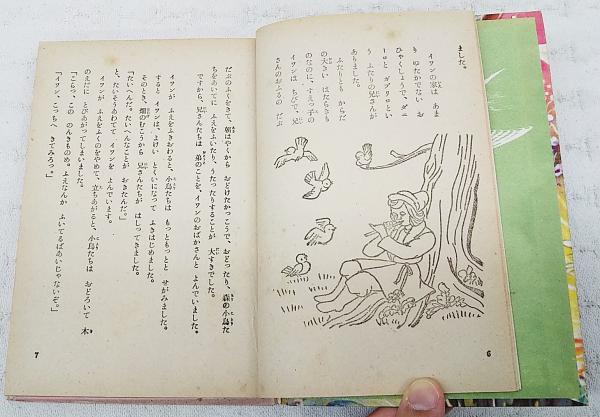 ました。
イワンの家は、あま
り ゆたかでない お
ひゃくしょうで、ダニ
ーロと ガブリロとい
う ふたりの 兄さんが
ありました。
ふたりとも からだ
の大きい はたらきも
のなのに、すえっ子の
イワンは ちびで、兄
さんの おふるの だぶ
6
だぶのふくをきて、朝はやくから おどけたかっこうで、おどったり、森の小鳥た
ちをあいてに ふえをふいたり、うたったりすることが 大すきでした。
ですから、兄さんたちは 弟のことを、イワンのおばかさんと よんでいました。
イワンが ふえをふきおわると、小鳥たちは もっともっとと せがみました。
するとイワンは、よけい とくいになって ふきはじめました。
そのとき、畑のむこうから 兄さんたちが はしってきました。
「たいへんだ。たいへんなことが おきたんだ。」
と、たいそうあわてて イワンを よんでいます。
イワンが ふえをふくのをやめて、立ちあがると、小鳥たちは おどろいて 木
のえだに とびあがってしまいました。
「こらっ、この のんきものめ。ふえなんか ふいてるばあいじゃないぞ。」
「イワン こっちへ きてみろっ。」
7